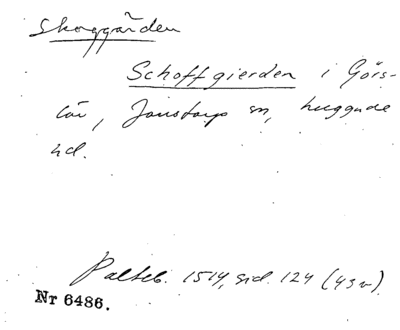 Skoggården
Schoffgierden i Görs-
löv, Jonstorps sn, Luggude
hd.
Palteb. 1514, sid. 124 (43v).
Nr 6486.